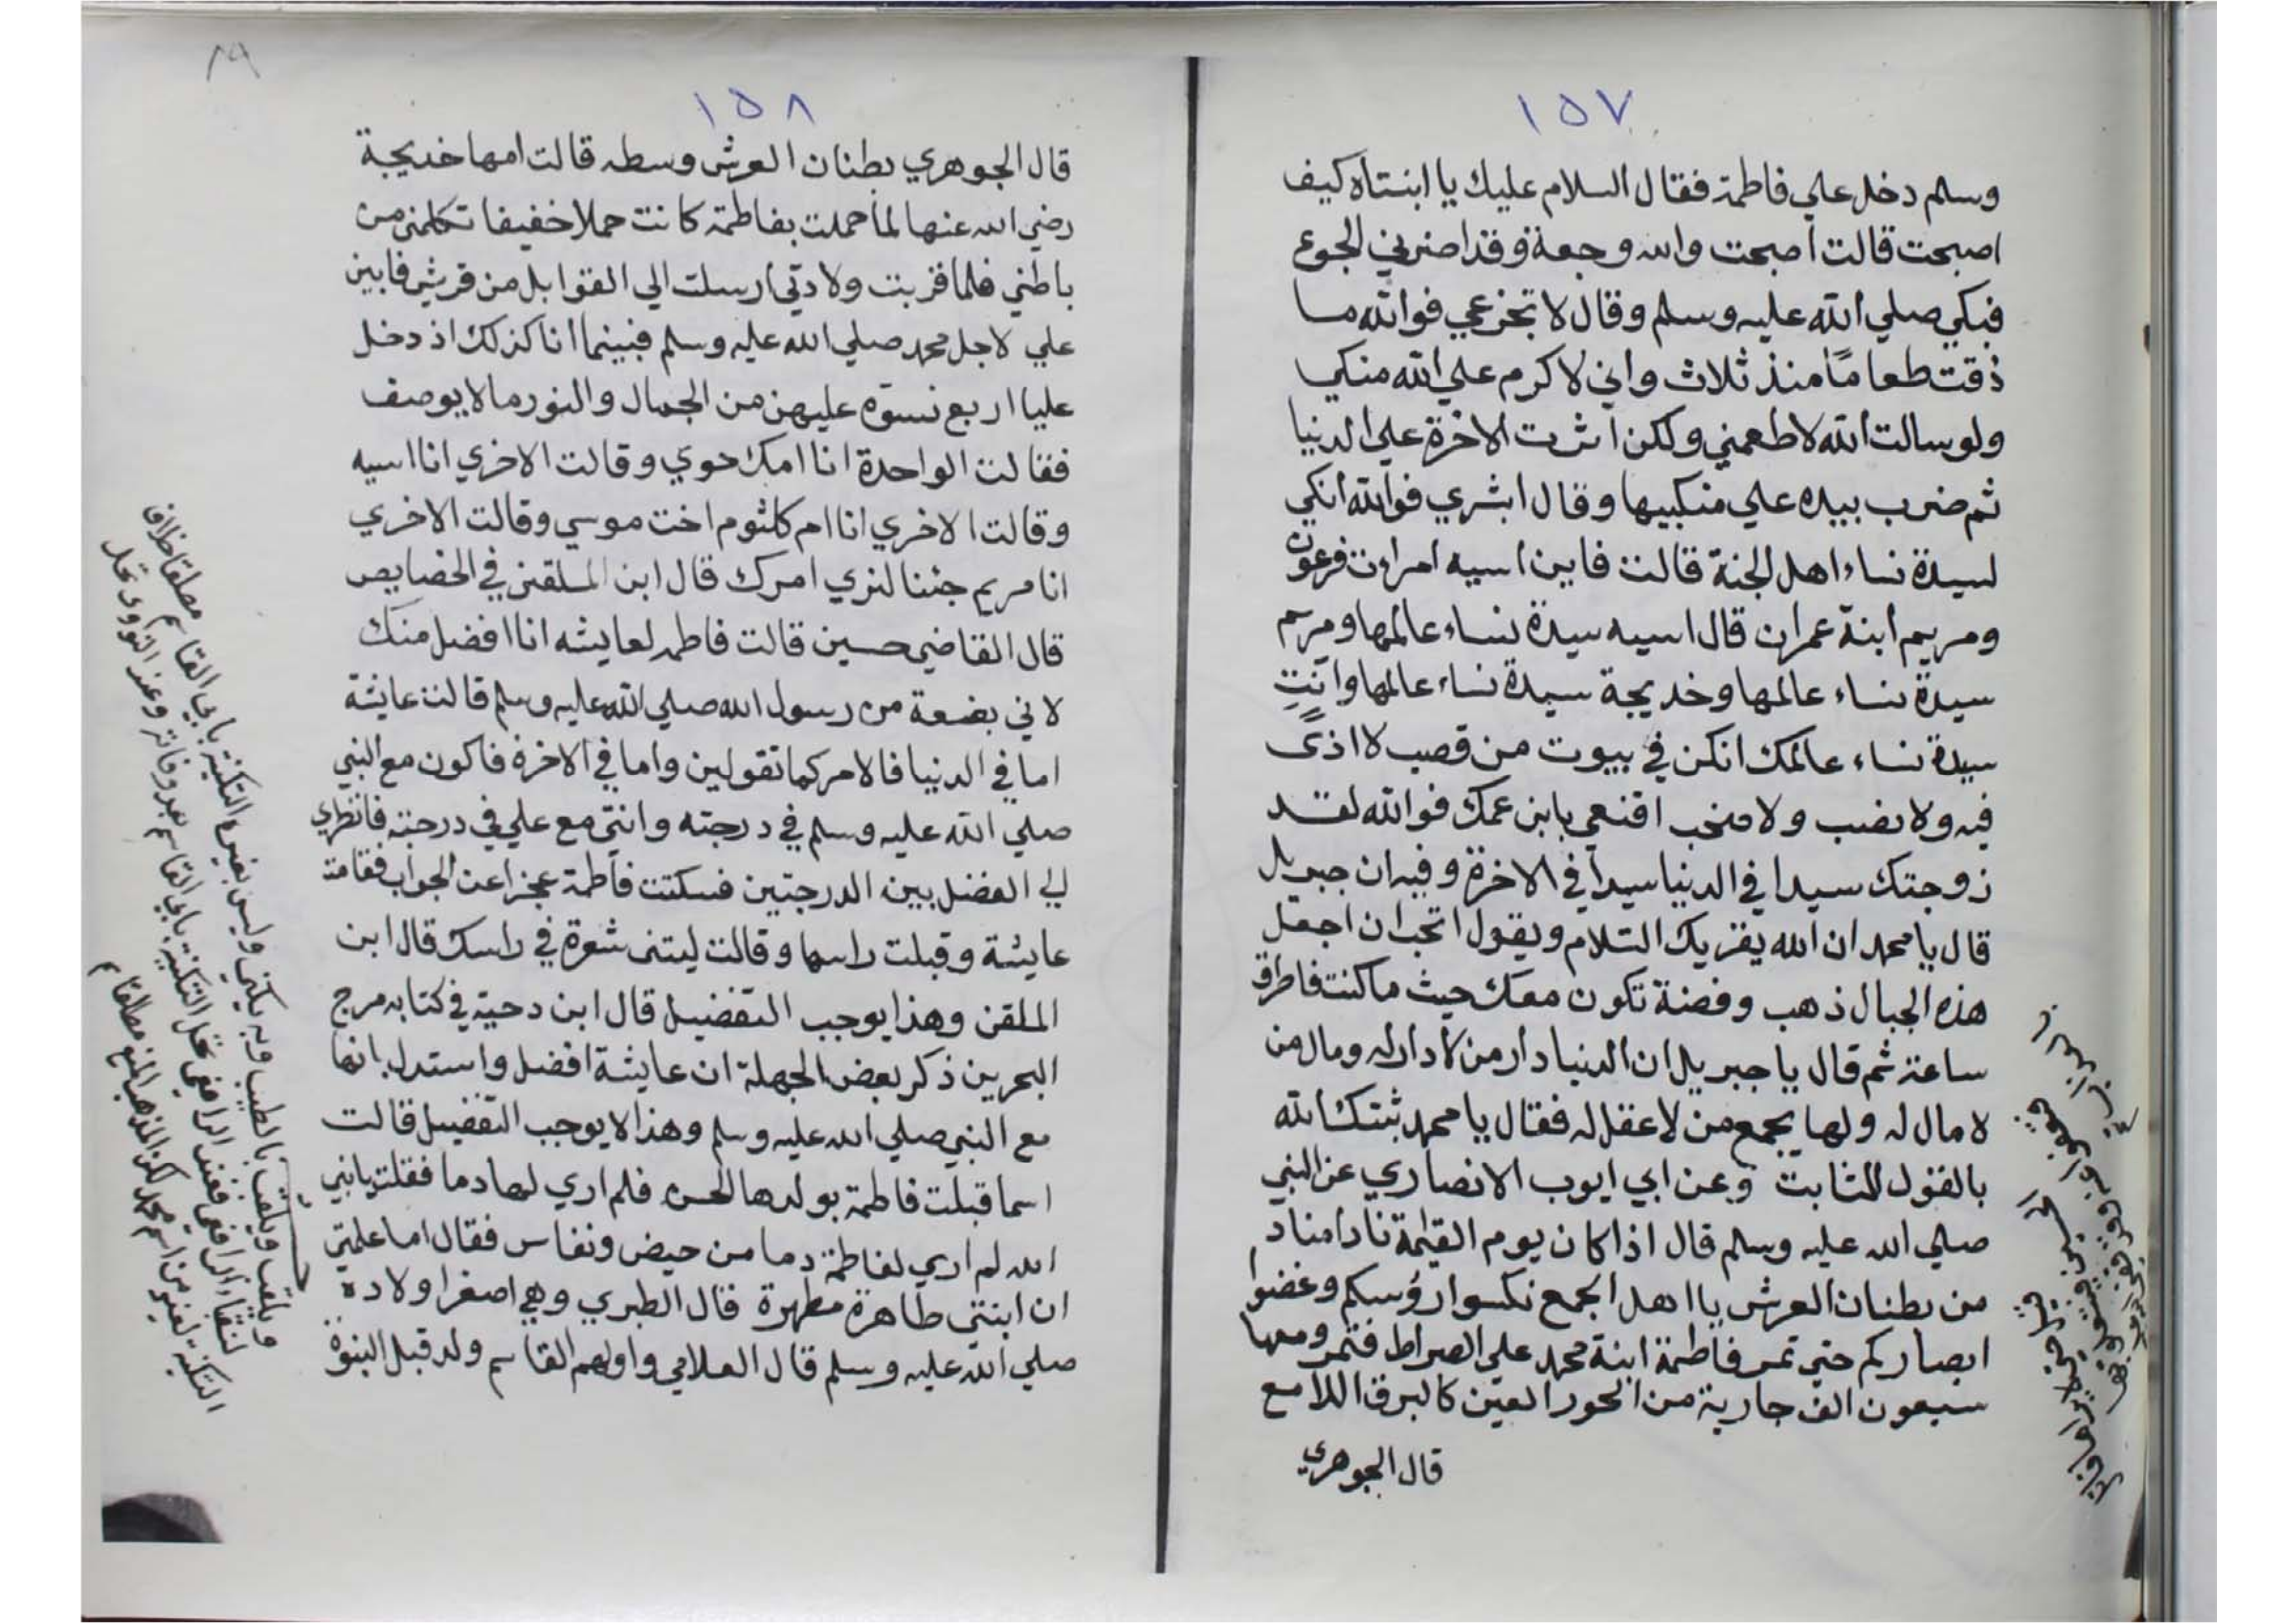 ١٥٧
وسلم دخل علي فاطمة فقال السلام عليك يا ابنتاه كيف
اصبحت قالت اصبحت والله وجعة وقد اضرني الجوع
فبكي صلي الله عليه وسلم وقال لا تجزعي فوالله ما
ذقت طعاماً منذ ثلاث واني لاكرم علي الله منكي
ولو سالت الله لاطعمني ولكن اثرت الاخرة علي الدنيا
ثم ضرب بيده علي منكبيها وقال ابشري فوالله انكي
لسيدة نساء اهل الجنة قالت فاين اسيه امرات فرعون
ومريم ابنة عمران قال اسيه سيدة نساء عالمها ومريم
سيدة نساء عالمها وخديجة سيدة نساء عالمها وانتِ
سيدة نساء عالمك انكن في بيوت من قصب لا اذىً
فيه ولا نصب ولا صخب اقنعي بابن عمك فوالله لقد
زوجتك سيدا في الدنيا سيدا في الاخرة وفيه ان جبريل
قال يا محمد ان الله يقريك السلام ويقول اتحب ان اجعل
هذه الجبال ذهب وفضة تكون معك حيث ما كنت فاطرق
ساعة ثم قال يا جبريل ان الدنيا دار من لا دار له ومال من
لا مال له ولها يجمع من لا عقل له فقال يا محمد ثبتك الله
بالقول الثابت وعن ابي ايوب الانصاري عن النبي
صلي الله عليه وسلم قال اذا كان يوم القيمة نادا مناد
من بطنان العرش يا اهل الجمع نكسوا رؤسكم وغضوا
ابصاركم حتي تمر فاطمة ابنة محمد علي الصراط فتمر ومعها
سبعون الف جارية من الحور العين كالبرق اللامع
قال الجوهري
٨٩
١٥٨
قال الجوهري بطنان العرش وسطه قالت امها خديجة
رضي الله عنها لما حملت بفاطمة كانت حملا خفيفا تكلمني من
باطني فلما قربت ولادتي ارسلت الي القوابل من قريش فابين
علي لاجل محمد صلي الله عليه وسلم فبينما انا كذلك اذ دخل
عليا اربع نسوة عليهن من الجمال والنور ما لا يوصف
فقالت الواحدة انا امك حوي وقالت الاخري انا اسيه
وقالت الاخري انا ام كلثوم اخت موسي وقالت الاخري
انا مريم جئنا لنري امرك قال ابن الملقن في الخصايص
قال القاضي حسين قالت فاطمه لعايشه انا افضل منك
لاني بضعة من رسول الله صلي الله عليه وسلم قالت عايشة
اما في الدنيا فالامر كما تقولين واما في الاخرة فاكون مع النبي
صلي الله عليه وسلم في درجته وانتي مع علي في درجته فانظري
لي الفضل بين الدرجتين فسكتت فاطمة عجزا عن الجواب فقامة
عايشة وقبلت راسها وقالت ليتني شعرة في راسك قال ابن
الملقن وهذا يوجب التفضيل قال ابن دحية في كتابه مرج
البحرين ذكر بعض الجهلة ان عايشة افضل واستدل بانها
مع النبي صلي الله عليه وسلم وهذا لا يوجب التفضيل قالت
اسما قبلت فاطمة بولدها الحسن فلم اري لها دما فقلت يا نبي
الله لم اري لفاطمة دما من حيض ونفاس فقال اما علمتي
ان ابنتي طاهرة مطهرة قال الطبري وهي اصغر اولاده
صلي الله عليه وسلم قال العلامي واولهم القاسم ولد قبل النبوة
ويلقب بالطيب وبه يكني وليس لغيره التكنية بابي القاسم مطلقا خلاف